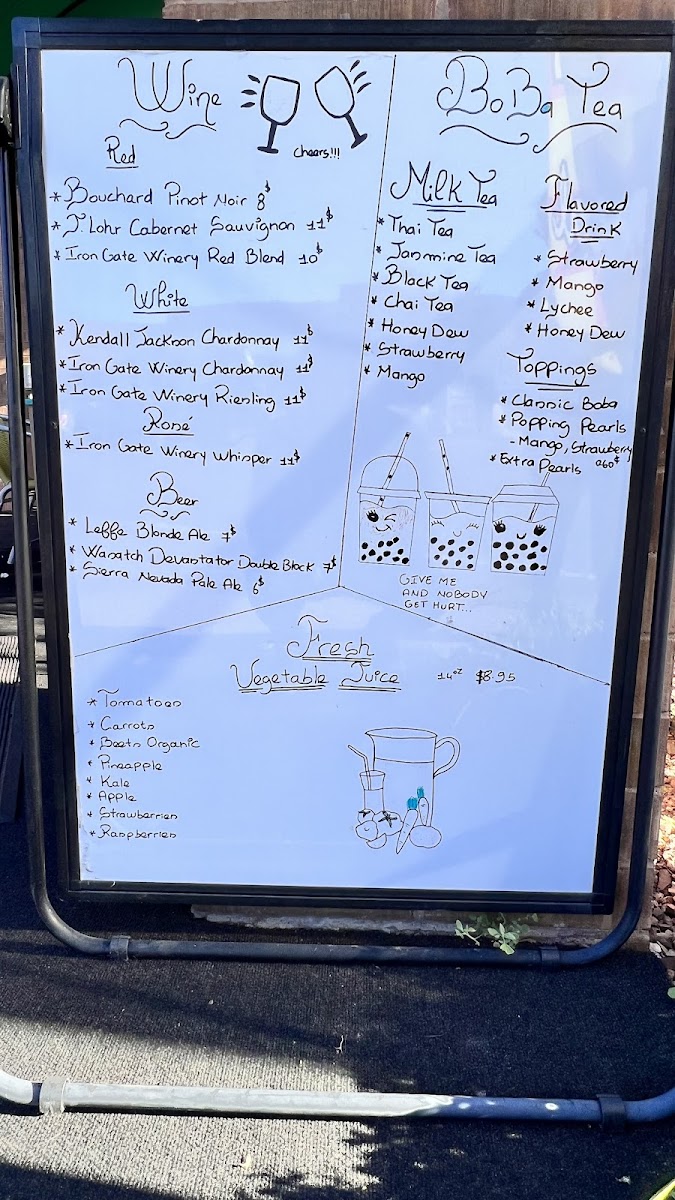 Wine
Cheers!!!
Red
* Bouchard Pinot Noir 8$
* J. Lohr Cabernet Sauvignon 11$
* Iron Gate Winery Red Blend 10$
White
* Kendall Jackson Chardonnay 11$
* Iron Gate Winery Chardonnay 11$
* Iron Gate Winery Riesling 11$
Rosé
* Iron Gate Winery Whisper 11$
Beer
* Leffe Blonde Ale 7$
* Wasatch Devastator Double Bock 7$
* Sierra Nevada Pale Ale 6$
BoBa Tea
Milk Tea
* Thai Tea
* Jasmine Tea
* Black Tea
* Chai Tea
* Honey Dew
* Strawberry
* Mango
Flavored
Drink
* Strawberry
* Mango
* Lychee
* Honey Dew
Toppings
* Classic Boba
* Popping Pearls
- Mango, Strawberry
* Extra Pearls 060$
GIVE ME
AND NOBODY
GET HURT...
Fresh
Vegetable Juice 14oz $8.95
* Tomatoes
* Carrots
* Beets Organic
* Pineapple
* Kale
* Apple
* Strawberries
* Raspberries